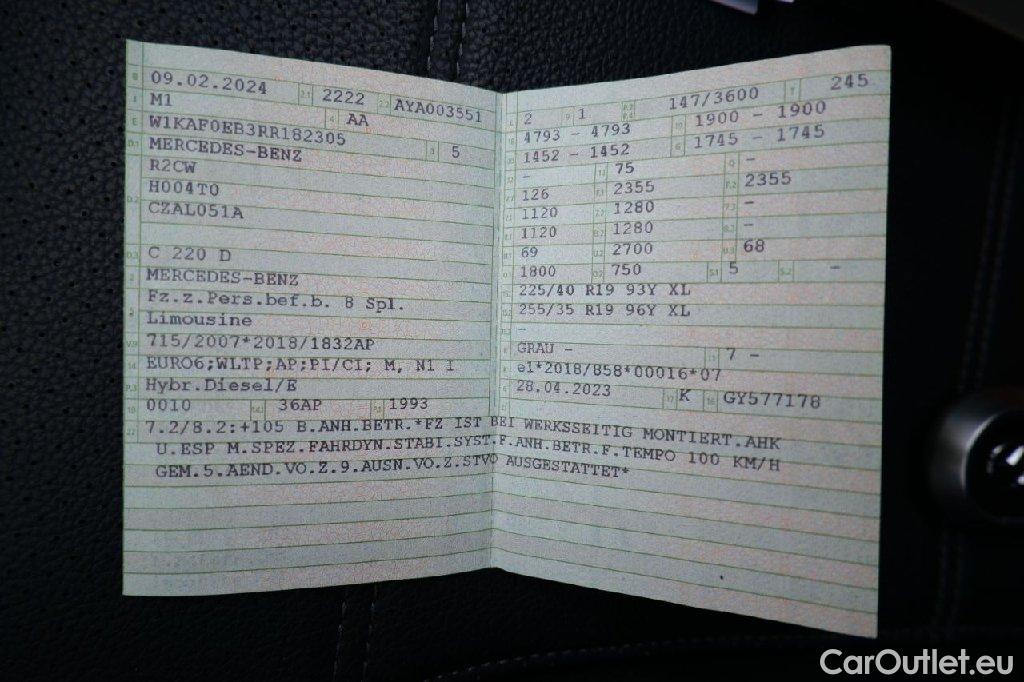 09.02.2024 2222 AYA003551
M1 AA
W1KAF0EB3RR182305
MERCEDES-BENZ 5
R2CW
H004T0
CZAL051A
C 220 D
MERCEDES-BENZ
Fz.z.Pers.bef.b. 8 Spl.
Limousine
715/2007*2018/1832AP
EURO6;WLTP;AP;PI/CI; M, N1 I
Hybr.Diesel/E
0010 36AP 1993
2 1 147/3600 245
4793 - 4793 1900 - 1900
1452 - 1452 1745 - 1745
- 75 -
126 2355 2355
1120 1280 -
1120 1280 -
69 2700 68
1800 750 5 -
225/40 R19 93Y XL
255/35 R19 96Y XL
-
GRAU - 7 -
e1*2018/858*00016*07
28.04.2023 K GY577178
7.2/8.2:+105 B.ANH.BETR.*FZ IST BEI WERKSSEITIG MONTIERT.AHK
U.ESP M.SPEZ.FAHRDYN.STABI.SYST.F.ANH.BETR.F.TEMPO 100 KM/H
GEM.5.AEND.VO.Z.9.AUSN.VO.Z.STVO AUSGESTATTET*
CarOutlet.eu